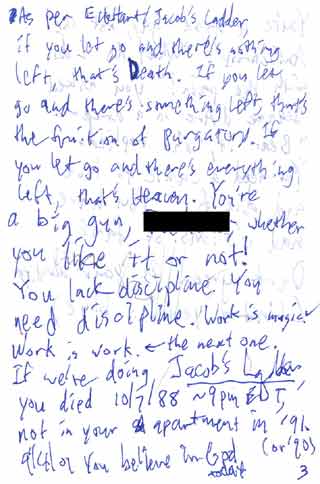 As per Eckhart/Jacob's Ladder,
if you let go and there's nothing
left, that's Death. If you let
go and there's something left, that's
the function of Purgatory. If
you let go and there's everything
left, that's Heaven. You're
a big gun, whether
you like it or not!
You lack discipline. You
need discipline. Work is magic.
Work is work. ← the next one.
If we're doing Jacob's Ladder
you died 10/7/88 ~9pm EDT,
not in your apartment in '91
(or '90)
You believe in God
3